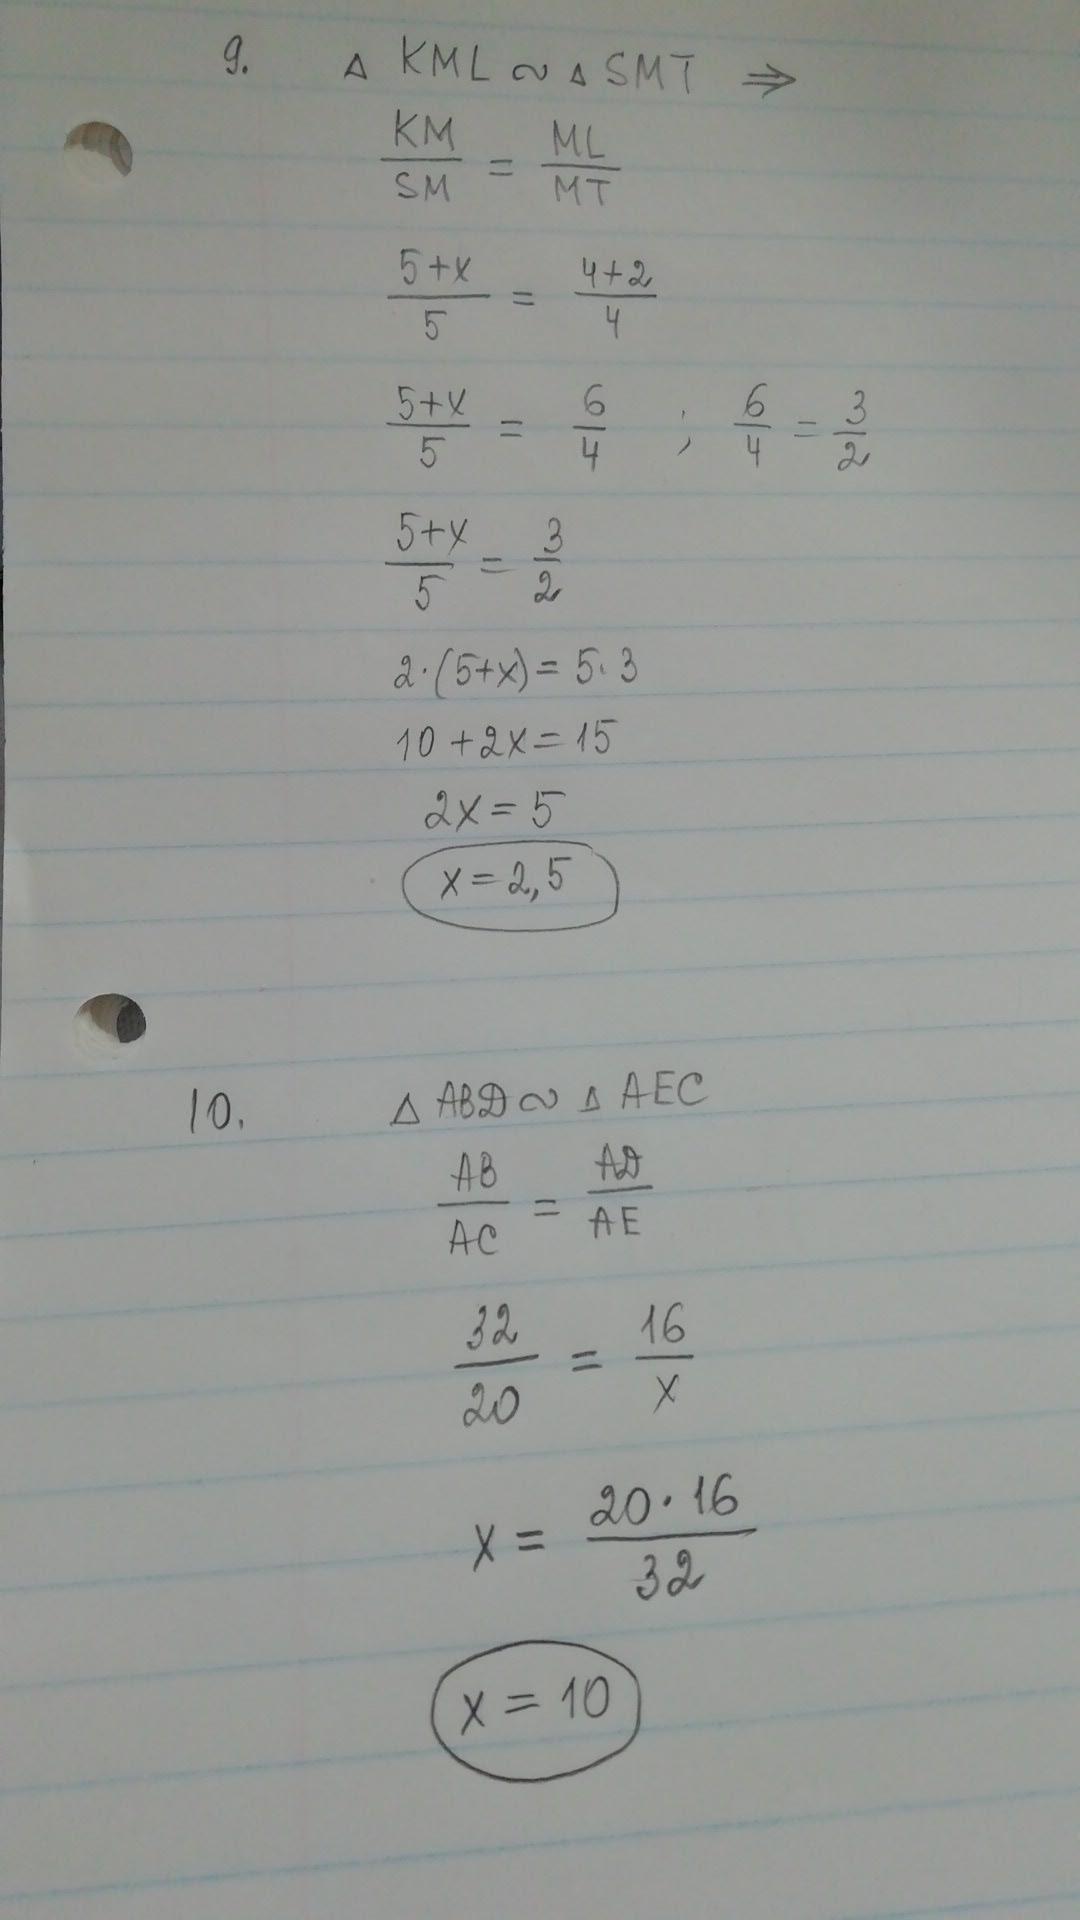 9. △ KML ∾ △ SMT ⇒
KM/SM = ML/MT
5+x/5 = 4+2/4
5+x/5 = 6/4 ; 6/4 = 3/2
5+x/5 = 3/2
2·(5+x) = 5·3
10+2x=15
2x=5
x=2,5
10. △ ABD ∾ △ AEC
AB/AC = AD/AE
32/20 = 16/x
x = 20·16/32
x = 10